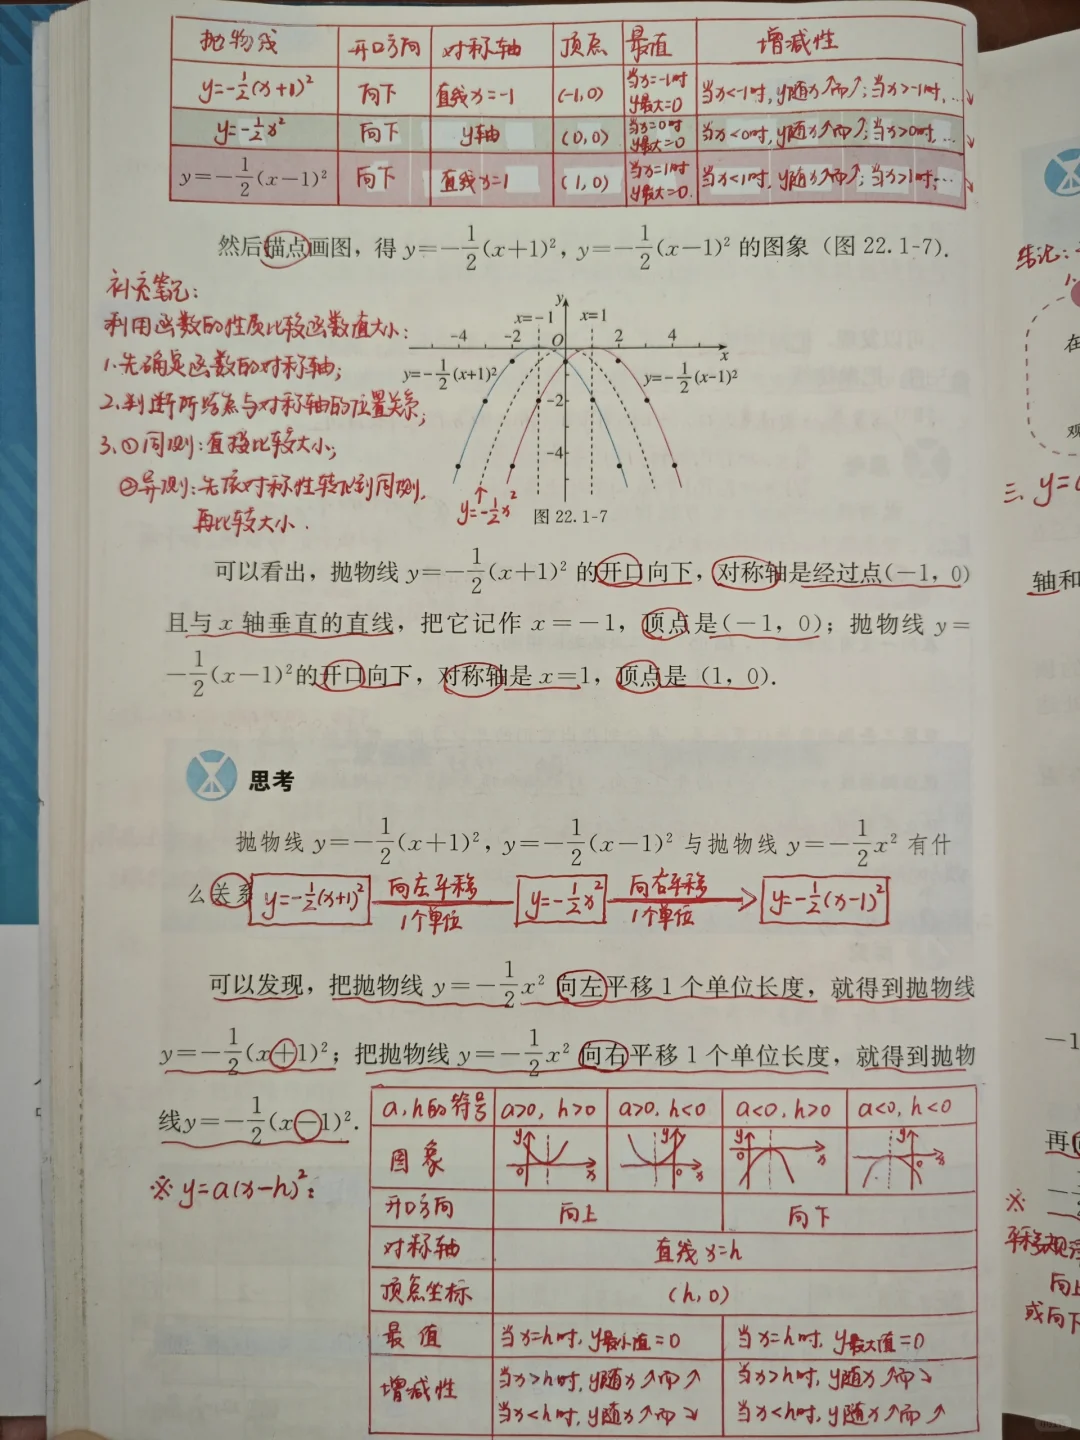 抛物线 开口方向 对称轴 顶点 最值 增减性
y=-1/2(x+1)² 向下 直线x=-1 (-1,0) 当x=-1时 y最大=0 当x<-1时,y随x↗而↗;当x>-1时,…↘
y=-1/2x² 向下 y轴 (0,0) 当x=0时 y最大=0 当x<0时,y随x↗而↗;当x>0时,…↘
y=-1/2(x-1)² 向下 直线x=1 (1,0) 当x=1时 y最大=0. 当x<1时,y随x↗而↗;当x>1时,…↘
然后描点画图,得 y=-1/2(x+1)², y=-1/2(x-1)² 的图象 (图 22.1-7).
补充笔记:
利用函数的性质比较函数值大小:
1.先确定函数的对称轴;
2.判断所给点与对称轴的位置关系;
3.①同侧:直接比较大小;
②异侧:先依对称性转化到同侧,
再比较大小.
y
x=-1 x=1
-4 -2 O 2 4 x
y=-1/2(x+1)² y=-1/2(x-1)²
-2
-4
y=-1/2x²
图 22.1-7
可以看出,抛物线 y=-1/2(x+1)² 的开口向下,对称轴是经过点(-1,0)
且与 x 轴垂直的直线,把它记作 x=-1,顶点是(-1,0);抛物线 y=
-1/2(x-1)²的开口向下,对称轴是 x=1,顶点是 (1,0).
思考
抛物线 y=-1/2(x+1)², y=-1/2(x-1)² 与抛物线 y=-1/2x² 有什
么关系
y=-1/2(x+1)² 向左平移 1个单位 y=-1/2x² 向右平移 1个单位 y=-1/2(x-1)²
可以发现,把抛物线 y=-1/2x² 向左平移 1 个单位长度,就得到抛物线
y=-1/2(x+1)²;把抛物线 y=-1/2x² 向右平移 1 个单位长度,就得到抛物
线y=-1/2(x-1)².
※ y=a(x-h)²:
a,h的符号 a>0,h>0 a>0,h<0 a<0,h>0 a<0,h<0
图象 y 0 x y 0 x y 0 x y 0 x
开口方向 向上 向下
对称轴 直线x=h
顶点坐标 (h,0)
最值 当x=h时,y最小值=0 当x=h时,y最大值=0
增减性 当x>h时,y随x↗而↗ 当x>h时,y随x↗而↘
当x<h时,y随x↗而↘ 当x<h时,y随x↗而↗
在
观
三、y=
轴和
-1
再
※
向上
或向下